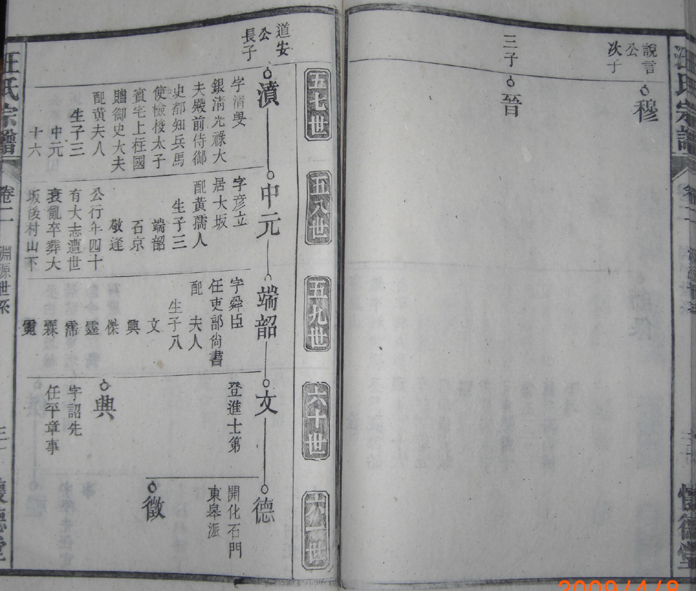 汪氏宗譜
說言公次子
穆
三子
晉
五七世
五八世
五九世
六十世
六一世
道安公長子
濆
字清叟
銀清光祿大
夫殿前侍御
史都知兵馬
使檢校太子
賓宅上柱國
贈御史大夫
配黃夫人
生子三
中元
十六
中元
字彥立
居大坂
配黃孺人
生子三
端韶
石京
敬逢
公行年四十
有大志遭世
衰亂卒葬大
坂後村山下
端韶
字舜臣
任吏部尙書
配 夫人
生子八
文
興
傑
霖
文
登進士第
興
字詔先
任平章事
德
開化石門
東皋派
徵
汪氏宗譜
卷二
淵源世系
懷德堂
2009/4/8